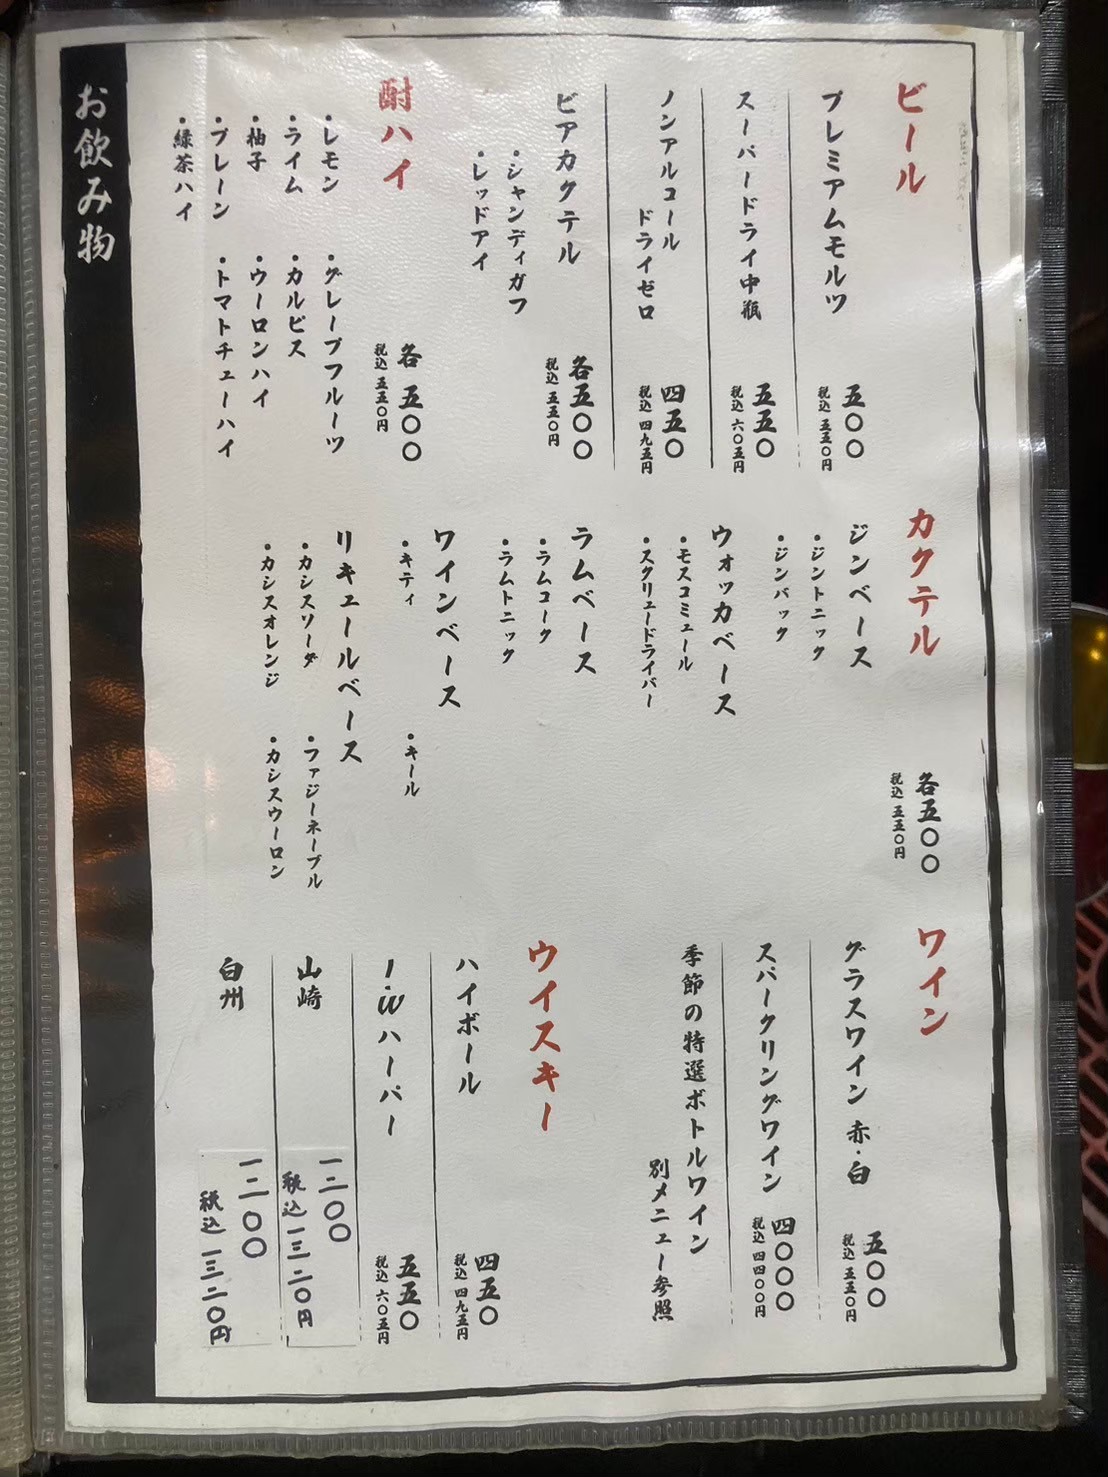 お飲み物
ビール
プレミアムモルツ
五〇〇
税込 五五〇円
スーパードライ中瓶
五五〇
税込 六〇五円
ノンアルコール
ドライゼロ
四五〇
税込 四九五円
ビアカクテル
各五〇〇
税込 五五〇円
・シャンディガフ
・レッドアイ
酎ハイ
各 五〇〇
税込 五五〇円
・レモン
・グレープフルーツ
・ライム
・カルピス
・柚子
・ウーロンハイ
・プレーン
・トマトチューハイ
・緑茶ハイ
カクテル
各五〇〇
税込 五五〇円
ジンベース
・ジントニック
・ジンバック
ウォッカベース
・モスコミュール
・スクリュードライバー
ラムベース
・ラムコーク
・ラムトニック
ワインベース
・キティ
・キール
リキュールベース
・カシスソーダ
・ファジーネーブル
・カシスオレンジ
・カシスウーロン
ワイン
グラスワイン 赤・白
五〇〇
税込 五五〇円
スパークリングワイン
四〇〇〇
税込 四四〇〇円
季節の特選ボトルワイン
別メニュー参照
ウイスキー
ハイボール
四五〇
税込 四九五円
I.Wハーパー
五五〇
税込 六〇五円
山崎
一二〇〇
税込一三二〇円
白州
一二〇〇
税込一三二〇円